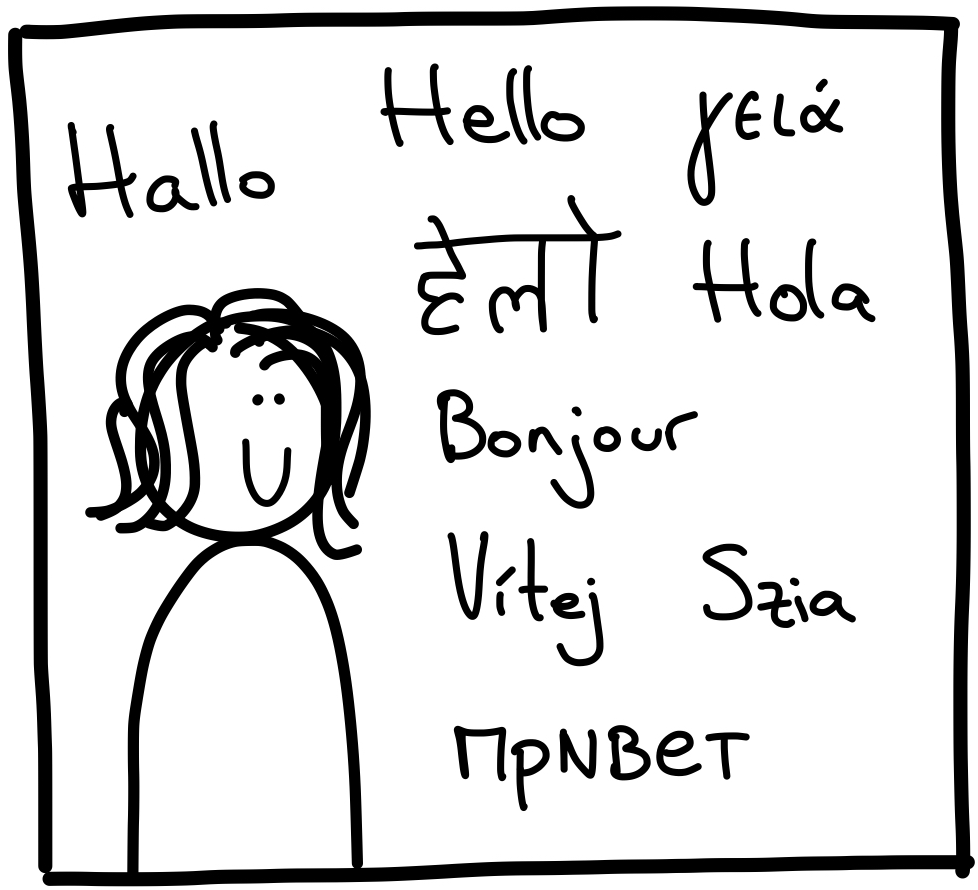 Hallo Hello γειά
हेलो Hola
Bonjour
Vítej Szia
ПрNвет